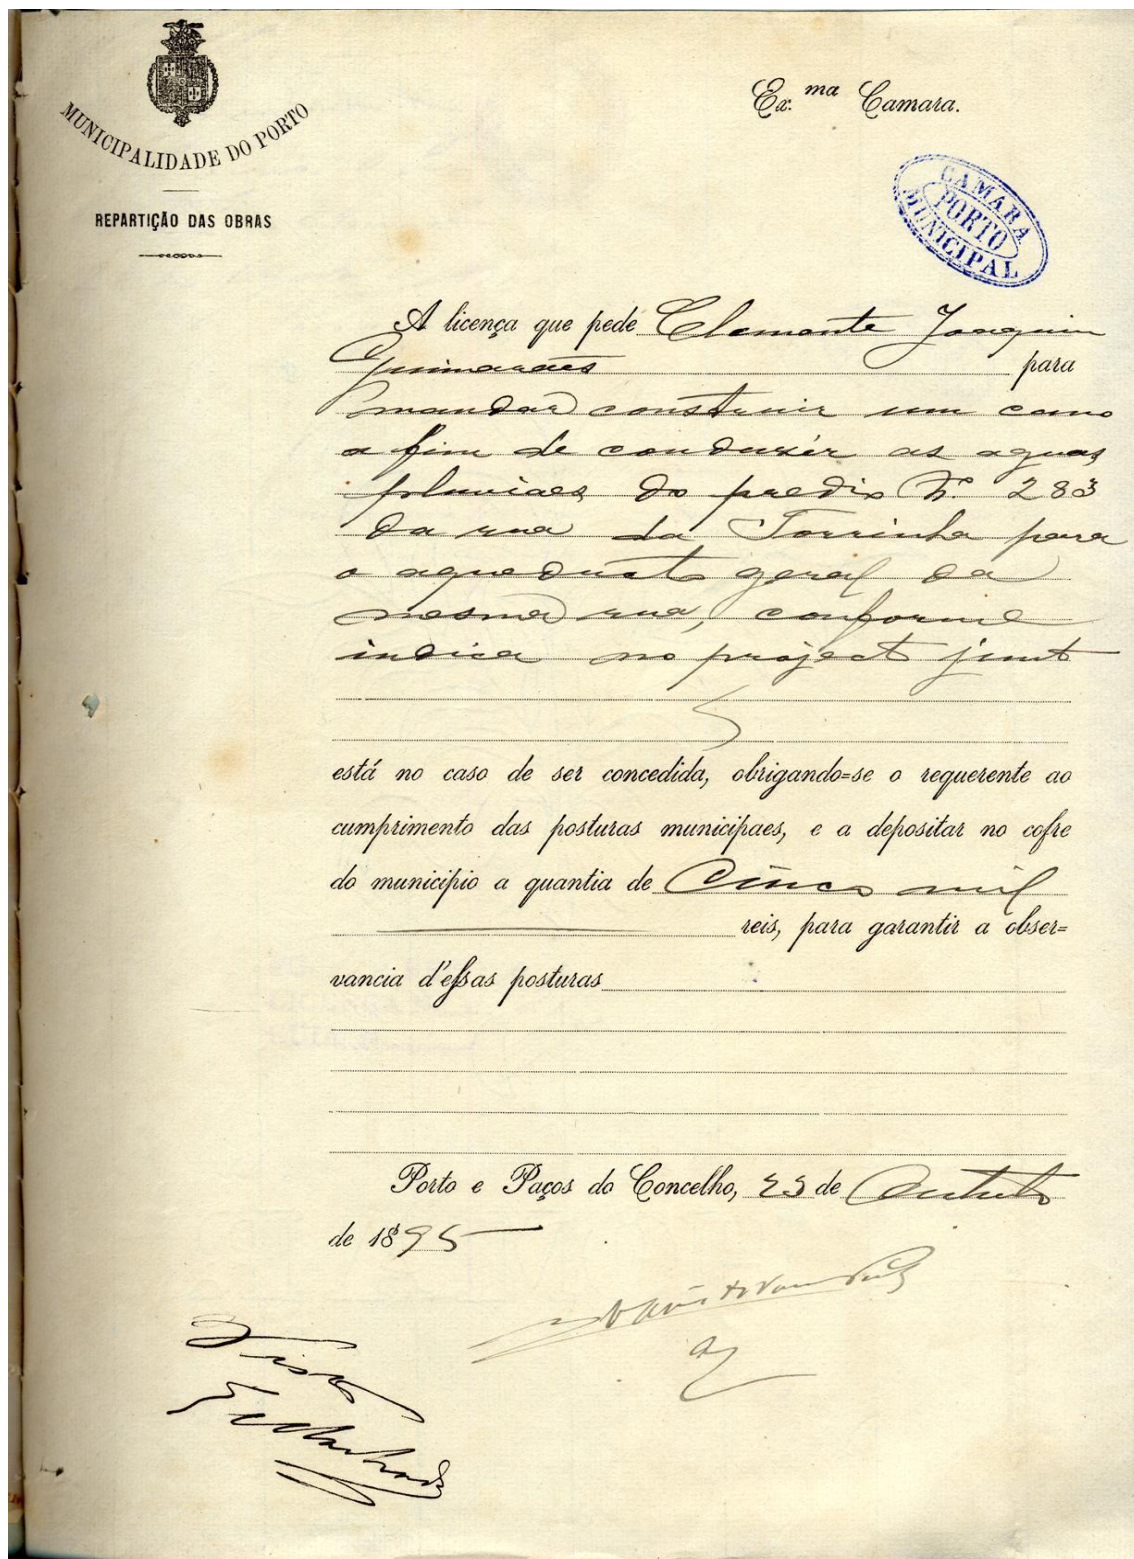 MUNICIPALIDADE DO PORTO
REPARTIÇÃO DAS OBRAS
Ex.ma Camara.
CAMARA
PORTO
MUNICIPAL
A licença que pede Clemente Joaquim
Guimarães para
mandar construir um cano
a fim de conduzir as aguas
pluviaes do predio N.º 283
da rua da Torrinha para
o aqueducto geral da
mesma rua, conforme
indica no projecto junto
está no caso de ser concedida, obrigando=se o requerente ao
cumprimento das posturas municipaes, e a depositar no cofre
do municipio a quantia de Cinco mil
reis, para garantir a obser=
vancia d'essas posturas
Porto e Paços do Concelho, 23 de Outubro
de 1895
Visto
Machado